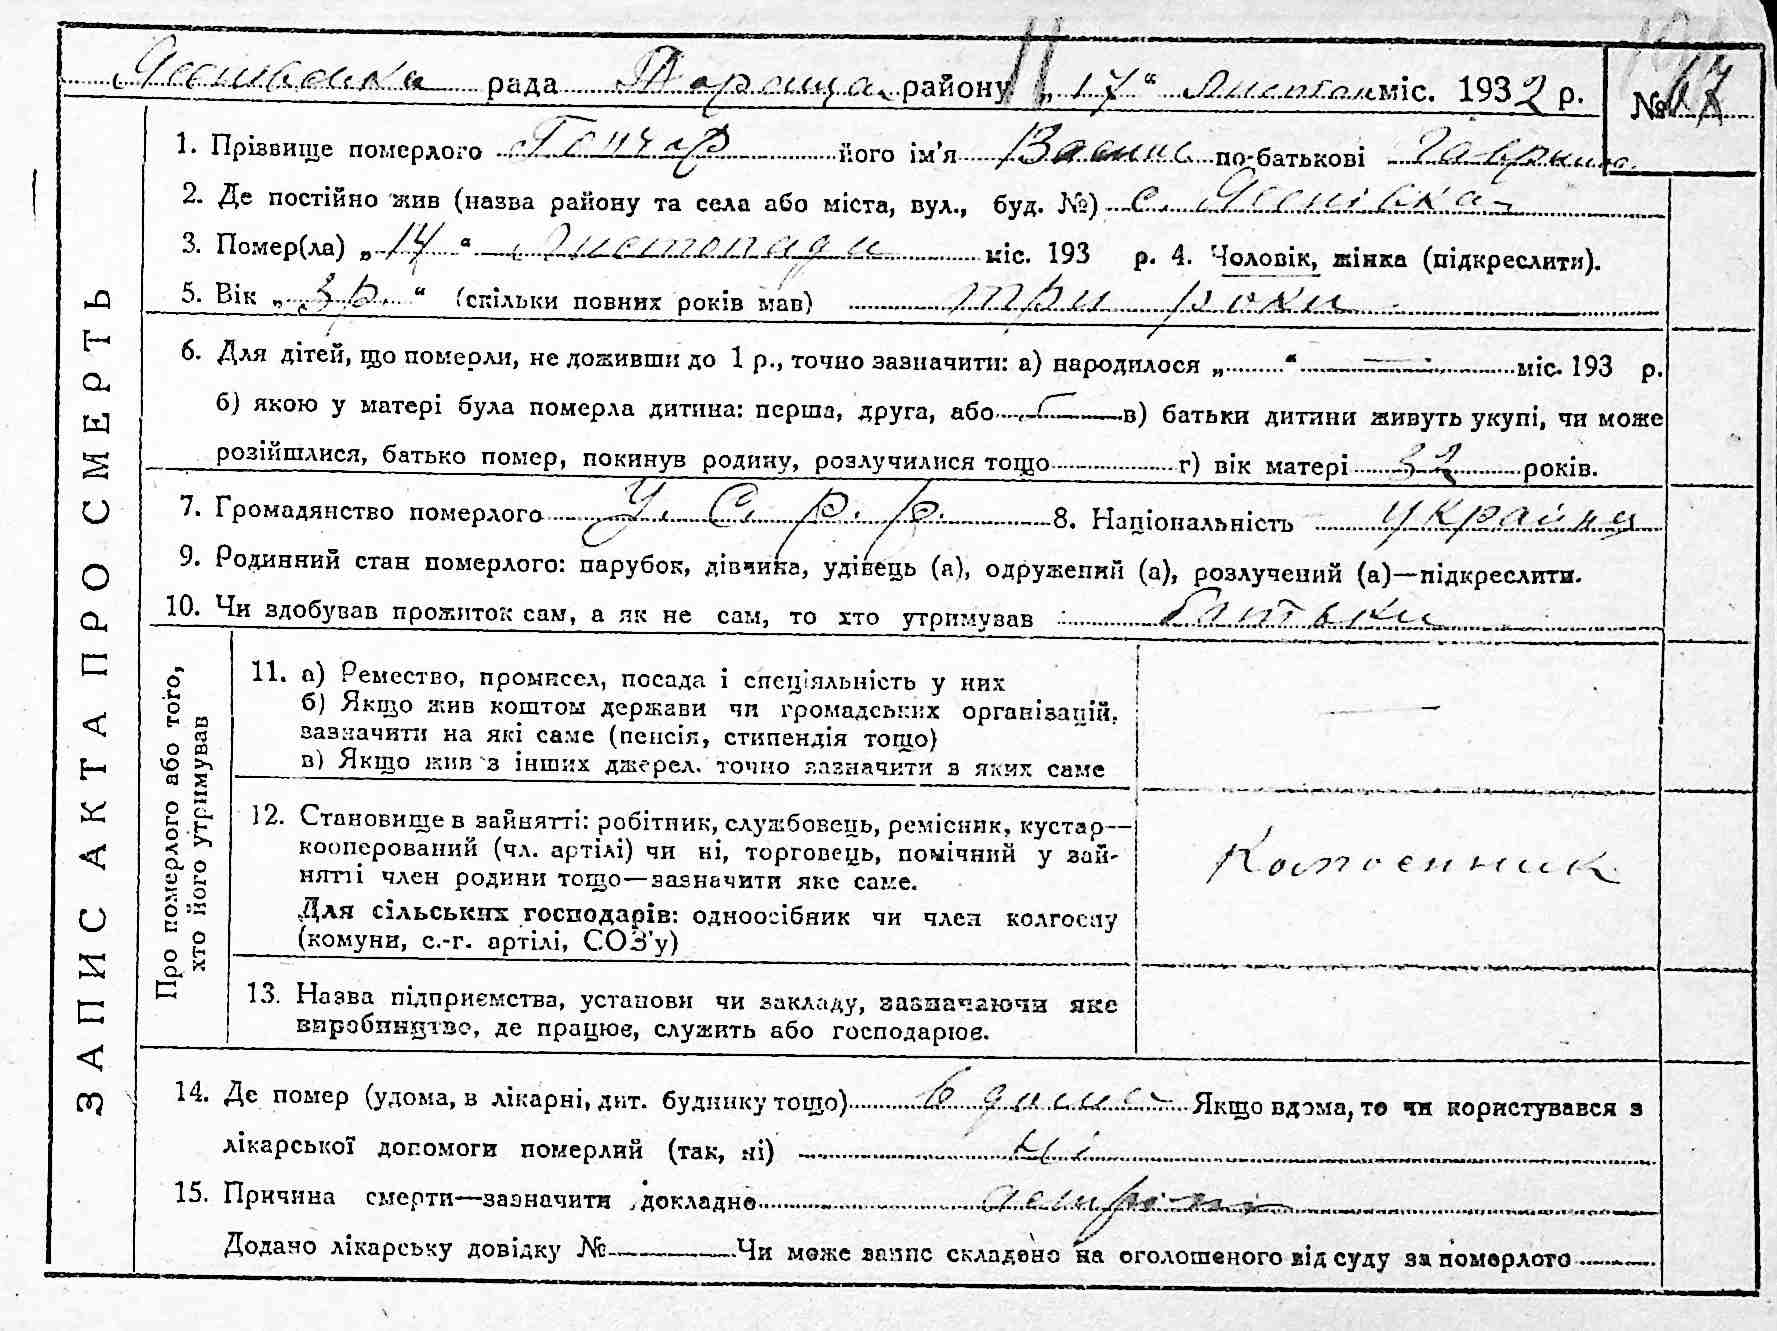 рада Тараща району „17“ листопад міс. 1932 р. № 17
1. Прізвище померлого Гончар його ім'я Василь по-батькові
2. Де постійно жив (назва району та села або міста, вул., буд. №) с.
3. Помер(ла) „17“ Листопада міс. 193 р. 4. Чоловік, жінка (підкреслити).
5. Вік „3 р.“ (скільки повних років мав) три роки
6. Для дітей, що померли, не доживши до 1 р., точно зазначити: а) народилося „ “ міс. 193 р.
б) якою у матері була померла дитина: перша, друга, або в) батьки дитини живуть укупі, чи може
розійшлися, батько помер, покинув родину, розлучилися тощо г) вік матері 32 років.
7. Громадянство померлого У. С. Р. Р. 8. Національність українц
9. Родинний стан померлого: парубок, дівчина, удівець (а), одружений (а), розлучений (а)—підкреслити.
10. Чи здобував прожиток сам, а як не сам, то хто утримував батьки
ЗАПИС АКТА ПРО СМЕРТЬ
Про померлого або того,
хто його утримував
11. а) Ремество, промисел, посада і спеціяльність у них
б) Якщо жив коштом держави чи громадських організацій,
зазначити на які саме (пенсія, стипендія тощо)
в) Якщо жив з інших джерел, точно зазначити з яких саме
12. Становище в зайнятті: робітник, службовець, ремісник, кустар—
кооперований (чл. артілі) чи ні, торговець, помічний у зай-
нятті член родини тощо—зазначити яке саме.
Для сільських господарів: одноосібник чи член колгоспу
(комуни, с.-г. артілі, СОЗ'у)
13. Назва підприємства, установи чи закладу, зазначаючи яке
виробництво, де працює, служить або господарює.
14. Де помер (удома, в лікарні, дит. будинку тощо) в дома Якщо вдома, то чи користувався з
лікарської допомоги померлий (так, ні) ні
15. Причина смерти—зазначити докладно
Додано лікарську довідку № Чи може запис складено на оголошеного від суду за померлого